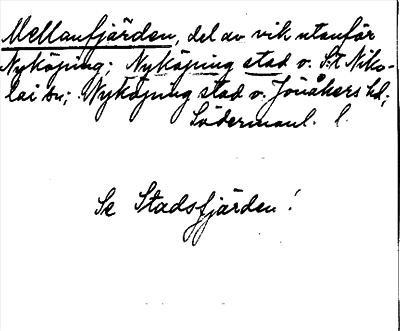 Mellanfjärden, del av vik utanför
Nyköping; Nyköping stad o. S:t Niko-
lai sn; Nyköping stad o. Jönåkers hd;
Södermanl. l.
Se Stadsfjärden!